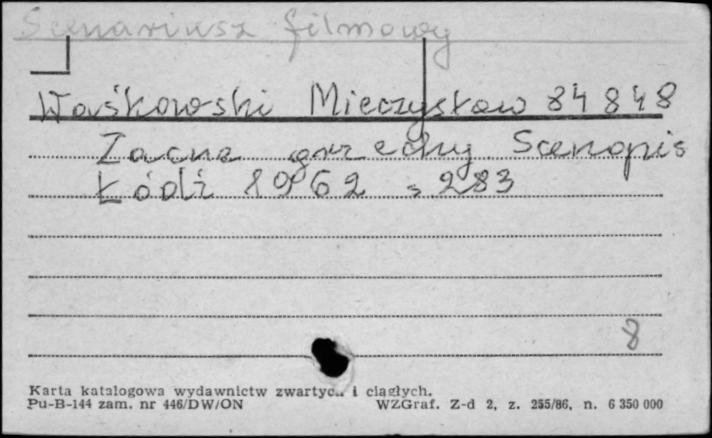 Scenariusz filmowy
Waśkowski Mieczysław 84848
Zacne grzechy Scenopis
Łódź 1962 s 283
8
Karta katalogowa wydawnictw zwartych i ciągłych.
Pu-B-144 zam. nr 446/DW/ON WZGraf. Z-d 2, z. 255/86, n. 6 350 000